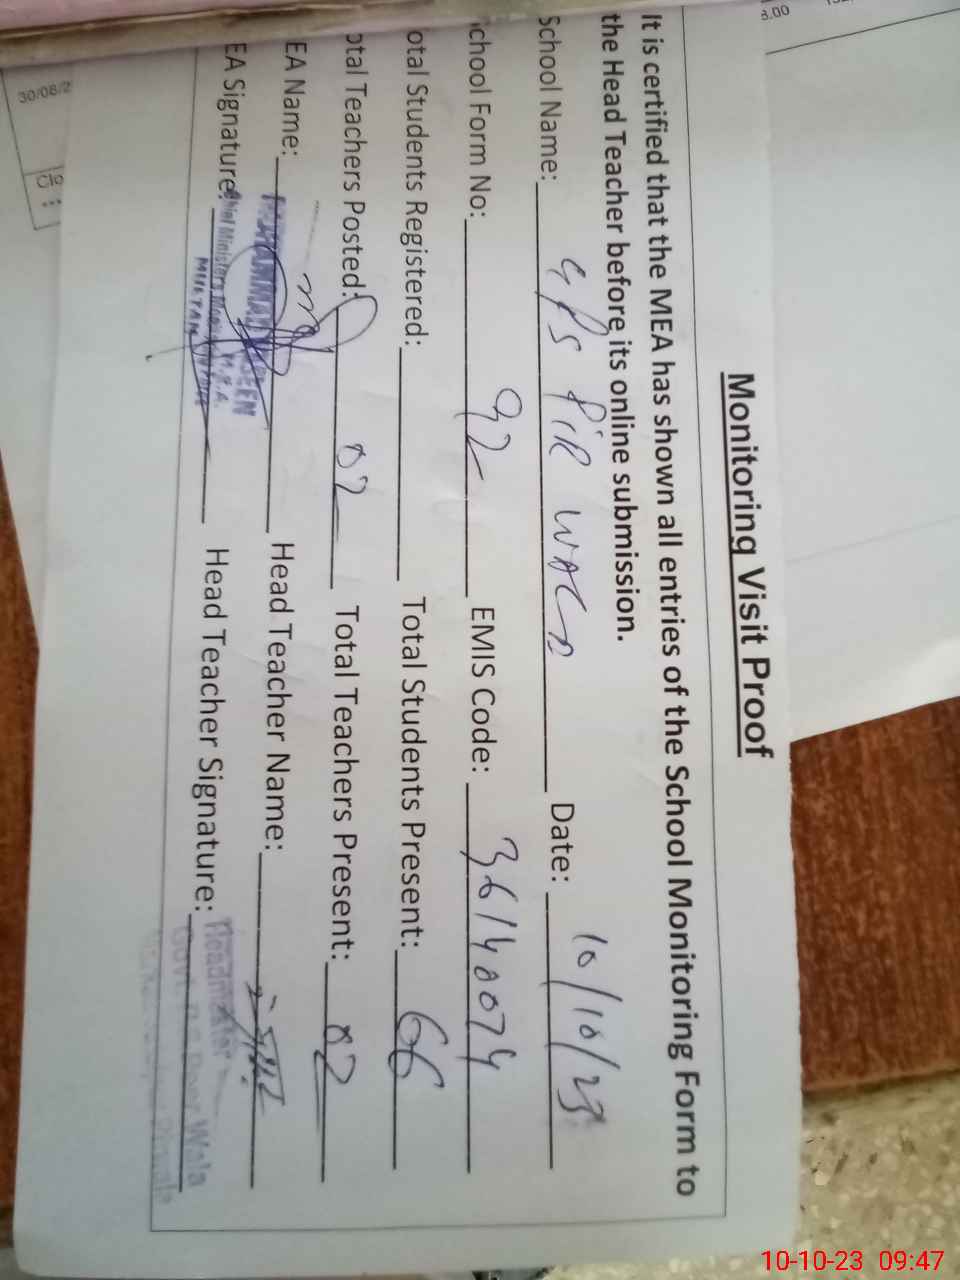 Monitoring Visit Proof
It is certified that the MEA has shown all entries of the School Monitoring Form to
the Head Teacher before its online submission.
School Name: GPS PIR WALA Date: 10/10/23
chool Form No: 92 EMIS Code: 36140074
otal Students Registered: Total Students Present: 66
otal Teachers Posted: 02 Total Teachers Present: 02
EA Name: MUHAMMAD Head Teacher Name:
EA Signature: Head Teacher Signature:
MULTAN
Headmaster
Govt. Wala
30/06/2
Clo
10-10-23 09:47